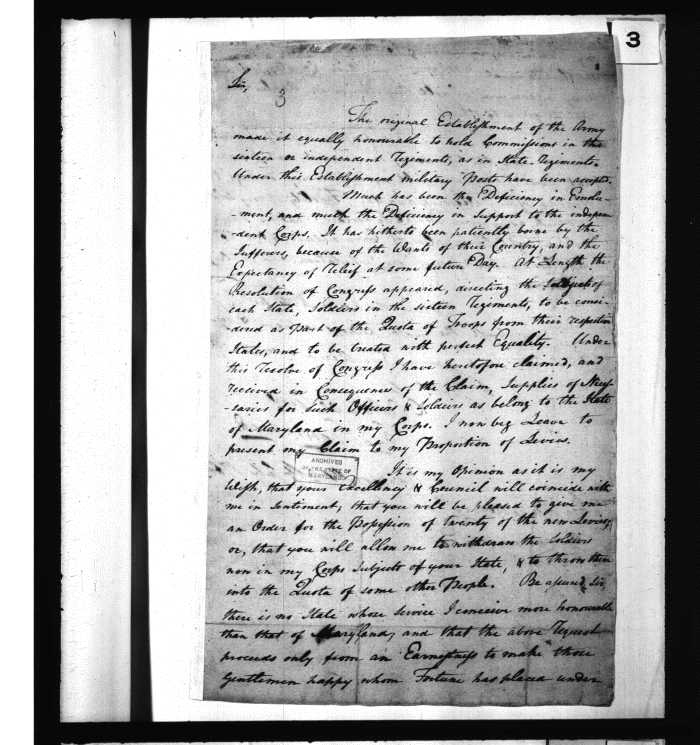 3
Sir,
3
The original Establishment of the Army
made it equally honourable to hold Commissions in the
sixteen or independent Regiments, as in State-Regiments.
Under this Establishment military Posts have been accepted.
Much has been the Deficiency in Emolu-
-ment, and much the Deficiency in Support to the indepen
-dent Corps. It has hitherto been patiently borne by the
Sufferers, because of the Wants of their Country, and the
Expectancy of Relief at some future Day. At Length the
Resolution of Congress appeared, directing the Subjects of
each State, Soldiers in the sixteen Regiments, to be consi-
-dered as Part of the Quota of Troops from their respective
States, and to be treated with perfect Equality. Under
this Resolve of Congress I have heretofore claimed, and
received in Consequence of the Claim, Supplies of Neces-
-saries for such Officers & Soldiers as belong to the State
of Maryland in my Corps. I now beg Leave to
present my Claim to my Proportion of Levies.
ARCHIVES
OF THE STATE OF
MARYLAND
It is my Opinion as it is my
Wish, that your Excellency & Council will coincide with
me in Sentiment; that you will be pleased to give me
an Order for the Possession of twenty of the new Levies;
or, that you will allow me to withdraw the Soldiers
now in my Corps Subjects of your State, & to throw them
into the Quota of some other People. Be assured, Sir,
there is no State whose Service I conceive more honourable
than that of Maryland; and that the above Request
proceeds only from an Earnestness to make those
Gentlemen happy whom Fortune has placed under